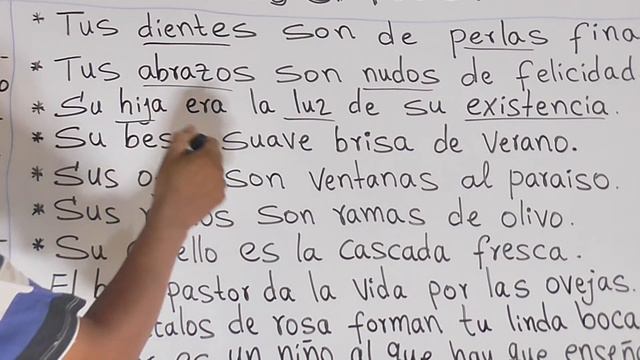 * Tus dientes son de perlas fina
* Tus abrazos son nudos de felicidad
* Su hija era la luz de su existencia.
* Su bes suave brisa de verano.
* Sus son ventanas al paraiso.
* Sus son ramas de olivo.
* Su ello es la cascada fresca.
El pastor da la vida por las ovejas.
talos de rosa forman tu linda boca
un niño al que hay que enseñ